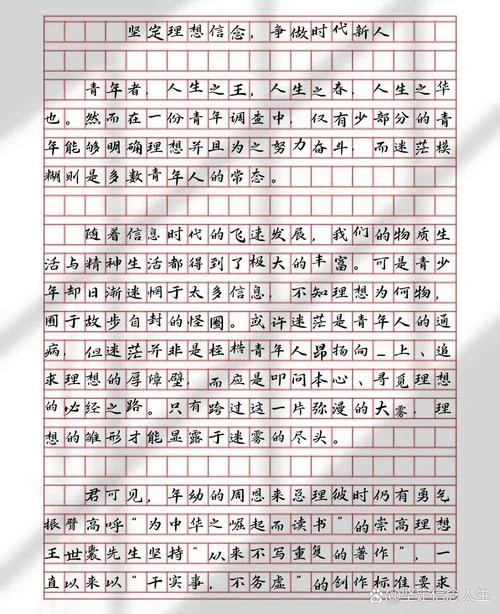 坚定理想信念，争做时代新人
青年者，人生之王，人生之春，人生之华
也。然而在一份青年调查中，仅有少部分的青
年能够明确理想并且为之努力奋斗，而迷茫模
糊则是多数青年人的常态。
随着信息时代的飞速发展，我们的物质生
活与精神生活都得到了极大的丰富。可是青少
年却日渐迷惘于太多信息，不知理想为何物，
囿于故步自封的怪圈。或许迷茫是青年人的通
病，但迷茫并非是桎梏青年人昂扬向_上、追
求理想的厚障壁，而应是叩问本心、寻觅理想
的必经之路。只有跨过这一片弥漫的大雾，理
想的雏形才能显露于迷雾的尽头。
君可见，年幼的周恩来总理彼时仍有勇气
振臂高呼“为中华之崛起而读书”的崇高理想
王世襄先生坚持“从来不写重复的著作”，一
直以来以“干实事，不务虚”的创作标准要求
@坚定信念人生